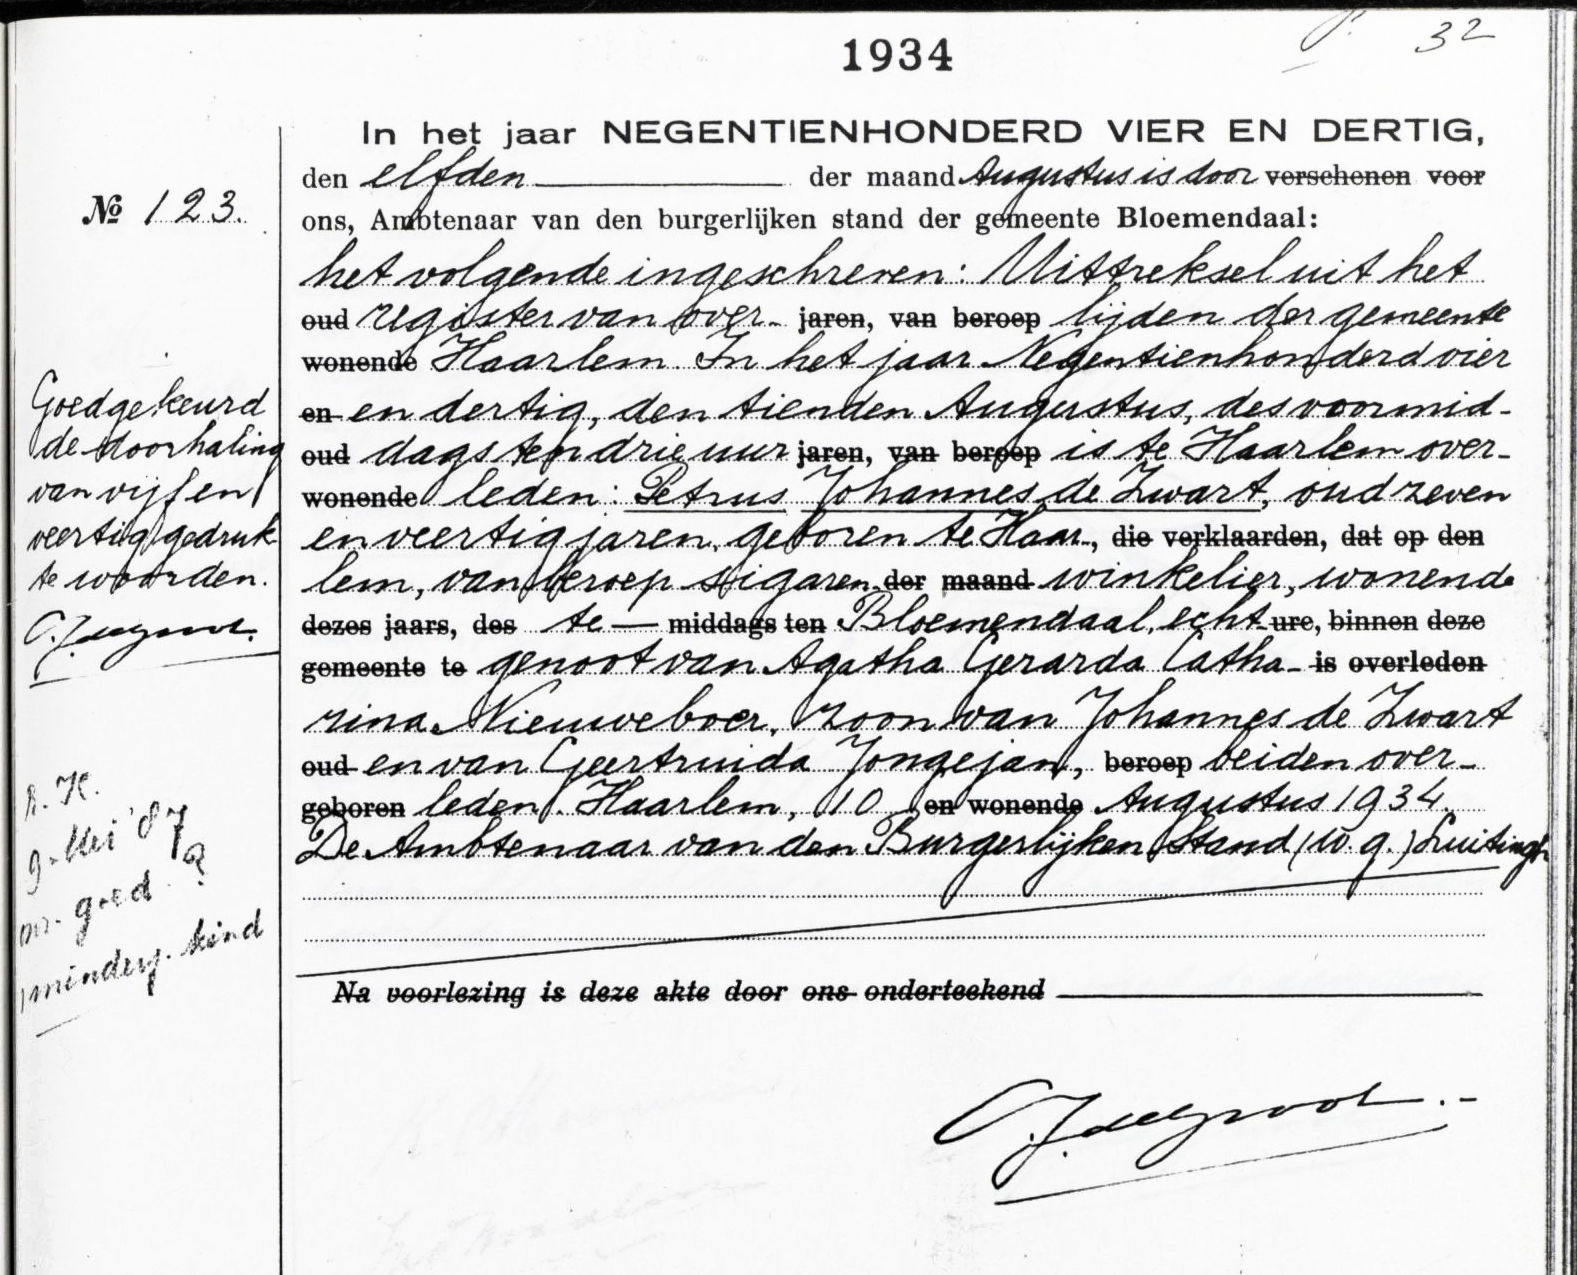 32
1934
In het jaar NEGENTIENHONDERD VIER EN DERTIG,
den elfden der maand Augustus is door verschenen voor
No 123.
ons, Ambtenaar van den burgerlijken stand der gemeente Bloemendaal:
het volgende ingeschreven: Uittreksel uit het
oud register van over- jaren, van beroep lijden der gemeente
wonende Haarlem. In het jaar Negentienhonderd vier
en en dertig, den tienden Augustus, des voormid-
oud dags ten drie uur jaren, van beroep is te Haarlem over-
wonende leden: Petrus Johannes de Zwart, oud zeven
en veertig jaren, geboren te Haar-, die verklaarden, dat op den
lem, van beroep sigaren- der maand winkelier, wonende
dezes jaars, des te middags ten Bloemendaal, echt- ure, binnen deze
gemeente te genoot van Agatha Gerarda Catha- is overleden
rina Nieuweboer, zoon van Johannes de Zwart
oud en van Geertruida Jongejan, beroep beiden over-
geboren leden. Haarlem, 10 en wonende Augustus 1934.
De Ambtenaar van den Burgerlijken Stand (w.g.) Luitingh
Na voorlezing is deze akte door ons onderteekend
Goedgekeurd
de doorhaling
van vijf en
veertig gedruk-
te woorden.
C.J. de Groot.
9 Mei '87
goed
minderj. kind
C.J. de Groot.